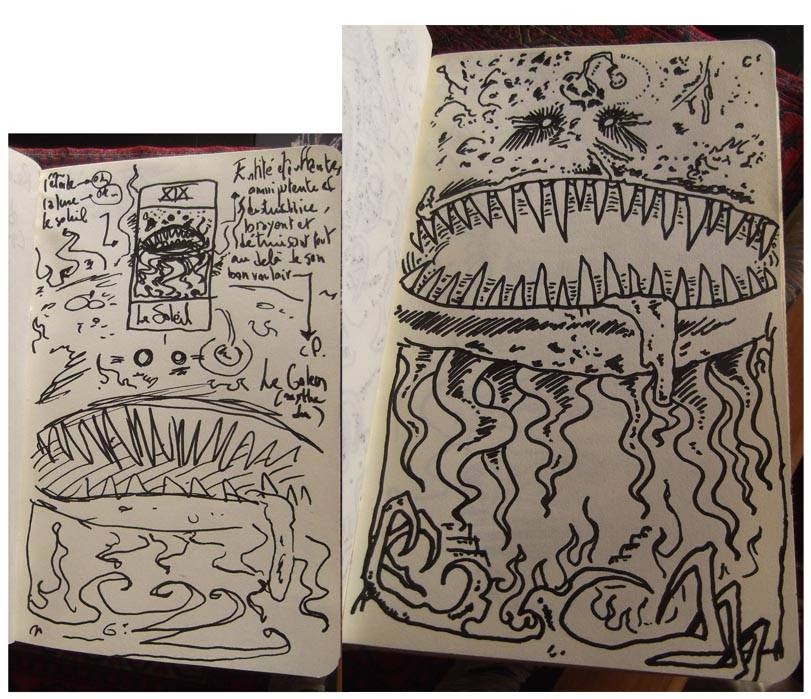 l'étoile
la lune
le soleil
XIX
Le Soleil
Entité
omnipotente et
destructrice,
broyant et
détruisant tout
au delà de son
bon vouloir
cP.
Le Golem